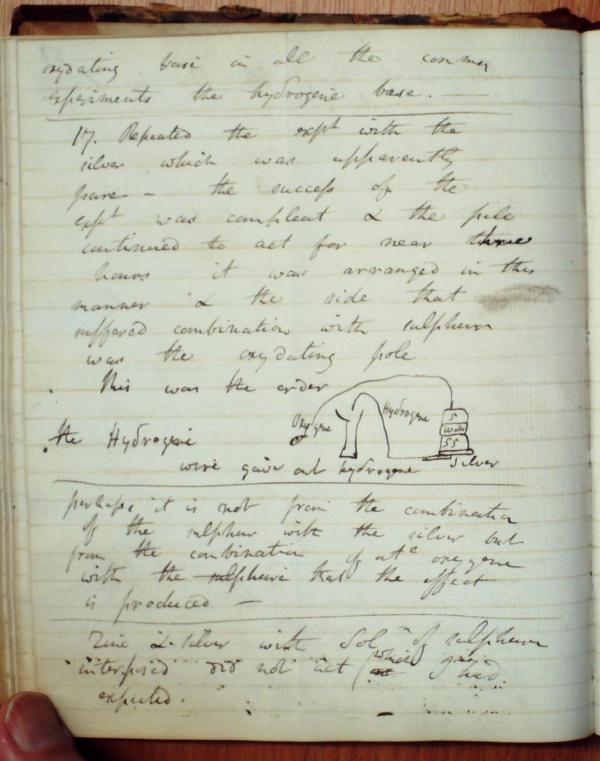 oxydating base in all the common
experiments the hydrogene base. —
17. Repeated the expt with the
silver which was apparently
pure – the success of the
expt was compleat & the pile
continued to act for near three
hours it was arranged in this
manner & the side that
suffered combination with sulphur
was the oxydating pole
This was the order
Oxygene Hydrogene S
Water
SS
Silver
the Hydrogene
wire gave out hydrogene
perhaps it is not from the combination
of the sulphur with the silver but
from the combination of oxygene
with the that the effect
is produced –
Zinc & silver with Soln of sulphure
interposed did not act which I had
expected.